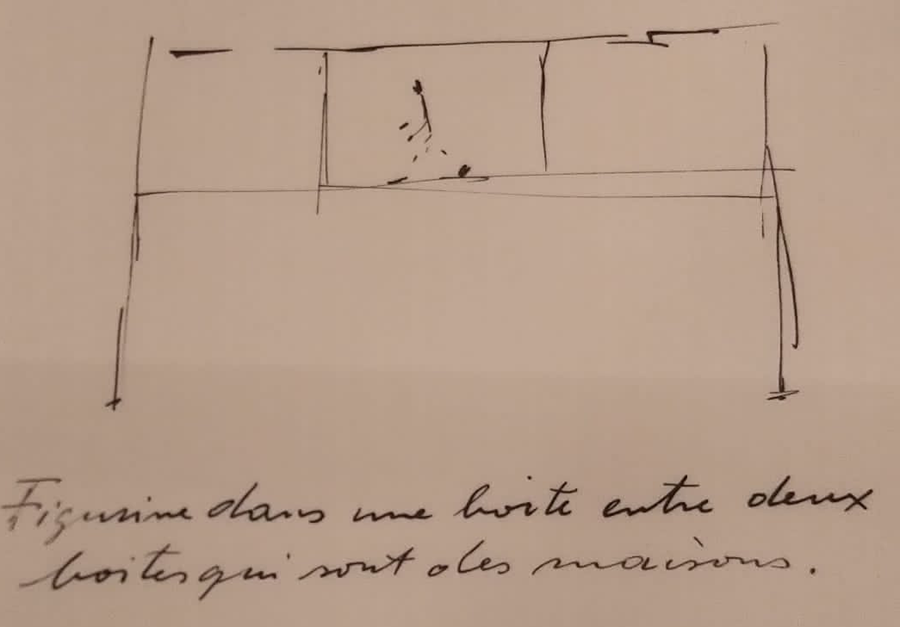 Figurine dans une boite entre deux
boites qui sont des maisons.